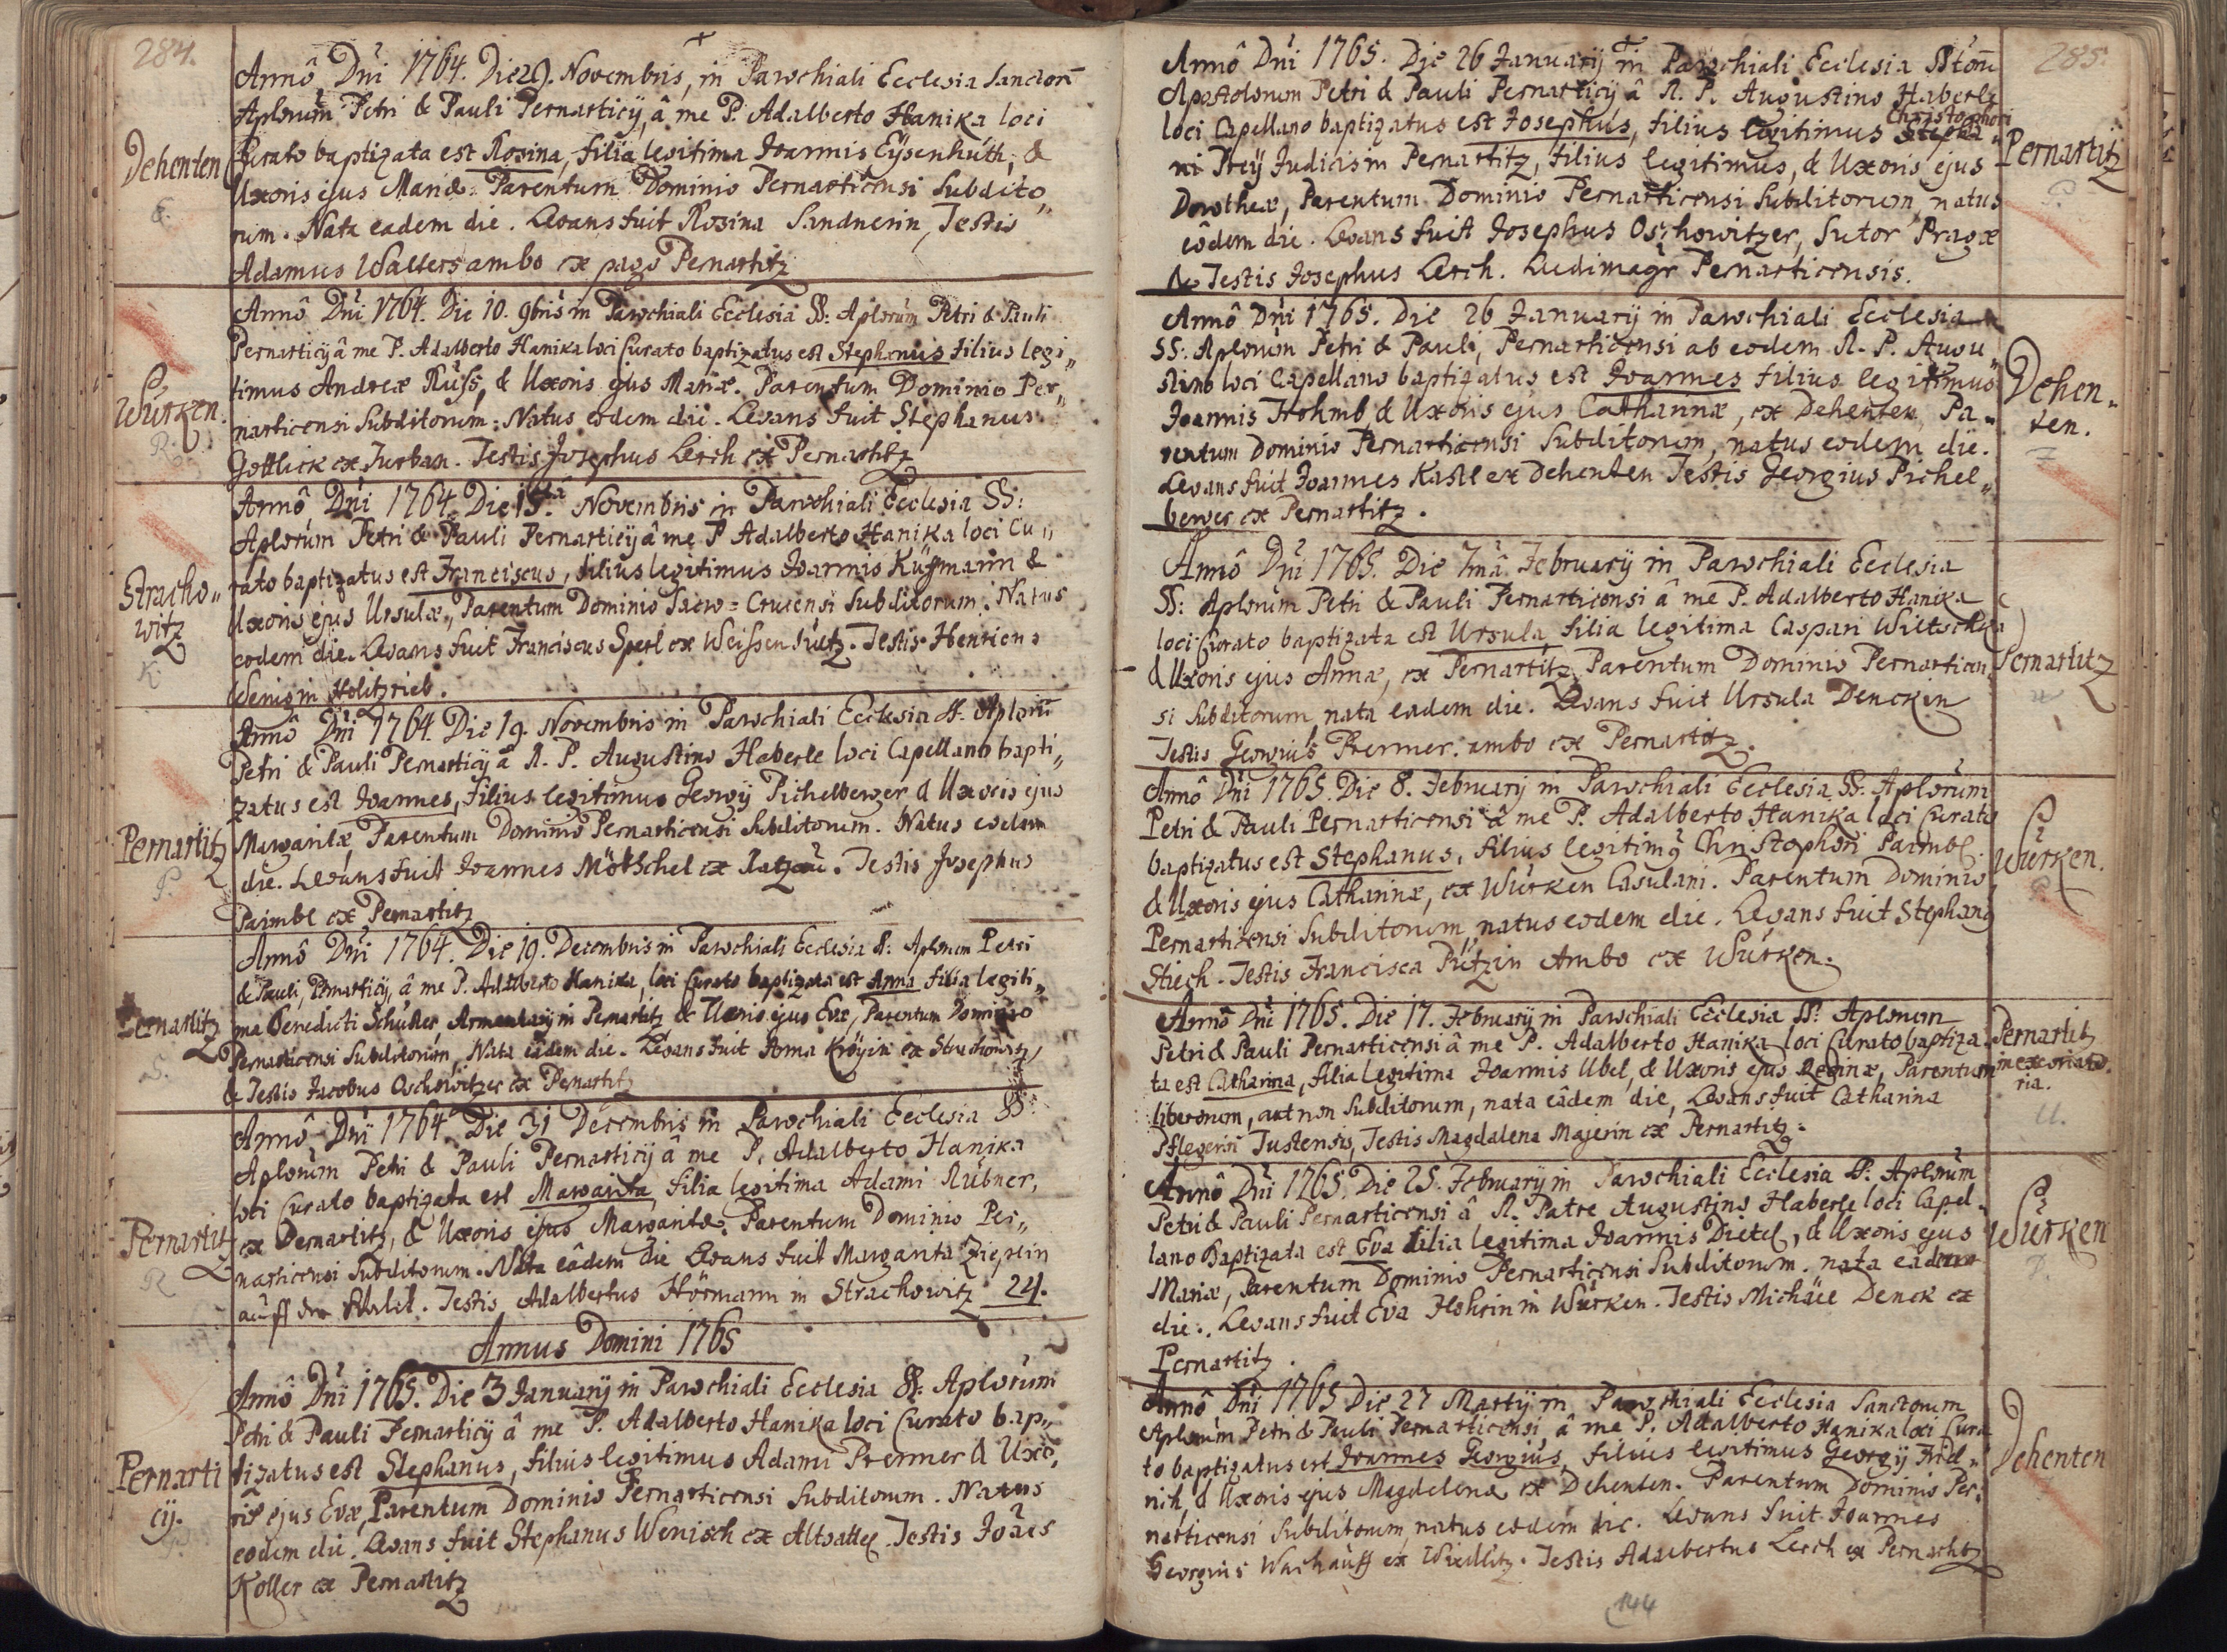 284.
Dehenten
E.
Annô Dni 1764. Die 29. Novembris, in Parochiali Ecclesia Sanctorū
Aplorum Petri & Pauli Pernarticij, â me P. Adalberto Hanika loci
Curato baptizata est Rosina, filia legitima Joannis Eÿsenhúth, &
Uxoris ejus Mariæ. Parentum Dominio Pernarticensi Subdito„
rum. Nata eadem die. Levans fuit Rosina Sandnerin, Testis
Adamus Walters ambo ex pago Pernartitz
Würken.
R.
Annô Dni 1764. Die 10. 9bris in Parochiali Ecclesiâ SS: Aplorum Petri & Pauli
Pernarticij â me P. Adalberto Hanika loci Curato baptizatus est Stephanus filius legi„
timus Andreæ Rüss, & Uxoris ejus Mariæ. Parentum Dominio Per„
narticensi Subditorum: Natus eodem die. Levans fuit Stephanus
Gottlick ex Turban. Testis Josephus Lerch ex Pernartitz
Stracho„
witz
K.
Annô Dni 1764. Die 15tâ Novembris in Parochiali Ecclesia SS:
Aplorum Petri & Pauli Pernarticij â me P Adalberto Hanika loci Cu„
rato baptizatus est Franciscus, filius legitimus Joannis Küssmann &
Uxoris ejus Ursulæ, Parentum Dominio Sacro=Crucensi Subditorum. Natus
eodem die. Levans fuit Franciscus Sperl ex Weissensultz. Testis Henricus
Wenig in Holtzrieb.
Pernartitz
P.
Annô Dni 1764. Die 19. Novembris in Parochiali Ecclesia SS. Aplorū
Petri & Pauli Pernarticij â R. P. Augustino Haberle loci Capellano bapti„
zatus est Joannes, filius legitimus Georgij Pichelberger & Uxoris ejus
Margaritæ Parentum Dominio Pernarticensi Subditorum. Natus eodem
die. Levans fuit Joannes Mötschel ex Ratzau. Testis Josephus
Paimbl ex Pernartitz
Pernartitz
S.
Annô Dni 1764. Die 19. Decembris in Parochiali Ecclesia SS: Aplorum Petri
& Pauli, Pernarticij, â me P. Adalberto Hanika, loci Curato baptizata est Anna filia legiti„
ma Benedicti Schuster Armentarij in Pernartitz & Uxoris ejus Evæ, Parentum Dominio
Pernarticensi Subditorum, Nata eâdem die. Levans fuit Anna Kröÿin ex Strachowitz,
& Testis Jacobus Oschowitzer ex Pernartitz
Pernartitz
R
Annô Dni 1764. Die 31 Decembris in Parochiali Ecclesia SS:
Aplorum Petri & Pauli Pernarticij â me P. Adalberto Hanika
loci Curato baptizata est Margarita, filia legitima Adami Rübner,
ex Pernartitz, & Uxoris ejus Margaritæ. Parentum Dominio Per„
narticensi Subditorum. Nata eâdem die Levans fuit Margarita Zieglin
auff der . Testis Adalbertus Hörmann in Strachowitz 24.
Annus Domini 1765
Pernarti
cij.
P.
Annô Dni 1765. Die 3 Januarij in Parochiali Ecclesia SS. Aplorum
Petri & Pauli Pernarticij â me P. Adalberto Hanika loci Curato bap„
tizatus est Stephanus, filius legitimus Adami Prenner & Uxo„
ris ejus Evæ, Parentum Dominio Pernarticensi Subditorum. Natus
eodem die. Levans fuit Stephanus Wenisch ex Altsattel. Testis Joaēs
Koller ex Pernartitz
285.
Annô Dni 1765. Die 26 Januarij in Parochiali Ecclesia SStorū
Apostolorum Petri & Pauli Pernarticij â R. P. Augustino Haberle
loci Capellano baptizatus est Josephus, filius legitimus Christophori Stepha„
ni Preÿ Judicis in Pernartitz, filius legitimus, & Uxoris ejus
Dorotheæ, Parentum Dominio Pernarticensi Subditorum, natus
eôdem die. Levans fuit Josephus Oschowitzer, Sutor Pragæ
& Testis Josephus Lerch. Ludimagr Pernarticensis.
Pernartitz
P.
Annô Dni 1765. Die 26 Januarij in Parochiali Ecclesia
SS: Aplorum Petri & Pauli, Pernarticensi ab eodem R. P. Augu„
stino loci Capellano baptizatus est Joannes filius legitimus
Joannis Frohmb, & Uxoris ejus Catharinæ, ex Dehenten, Pa„
rentum Dominio Pernarticensi Subditorum, natus eodem die.
Levans fuit Joannes Kastl ex Dehenten Testis Georgius Pichel„
berger ex Pernartitz.
Dehen„
ten.
F
Annô Dni 1765. Die 7mâ February in Parochiali Ecclesia
SS: Aplorum Petri & Pauli Pernarticensi â me P. Adalberto Hanika
loci Curato baptizata est Ursula filia legitima Caspari Wiltschka
& Uxoris ejus Annæ, ex Pernartitz, Parentum Dominio Pernarticen„
si Subditorum nata eadem die. Levans fuit Ursula Denckin
Testis Georgius Prenner. ambo ex Pernartitz.
Pernartitz
W
Annô Dni 1765. Die 8. February in Parochiali Ecclesia SS. Aplorum
Petri & Pauli Pernarticensi â me P. Adalberto Hanika loci Curato
baptizatus est Stephanus, filius legitimꝰ Christophori Paimbl.
& Uxoris ejus Catharinæ, ex Würken Casulani. Parentum Dominio
Pernarticensi Subditorum natus eodem die. Levans fuit Stephanꝰ
Stiech. Testis Francisca Pützin Ambo ex Würken.
Würken.
P.
Annô Dni 1765. Die 17. February in Parochiali Ecclesia SS: Aplorum
Petri & Pauli Pernarticensi â me P. Adalberto Hanika loci Curato baptiza
ta est Catharina, filia legitima Joannis Ubel, & Uxoris ejus Reginæ, Parentum
liberorum, aut non Subditorum, nata eâdem die, Levans fuit Catharina
Pflegerin Tustensis, Testis Magdalena Majerin ex Pernartitz.
Pernartitz
in excoriato„
ria.
U.
Annô Dni 1765. Die 25. February in Parochiali Ecclesia SS: Aplorum
Petri & Pauli Pernarticensi â R. Patre Augustino Haberle loci Capel„
lano Baptizata est Eva filia legitima Joannis Dietel, & Uxoris ejus
Mariæ, Parentum Dominio Pernarticensi Subditorum. nata eâdem
die. Levans fuit Eva Hohrin in Würken. Testis Michäel Denck ex
Pernartitz.
Würken
D.
Annô Dni 1765 Die 27 Martij in Parochiali Ecclesia Sanctorum
Aplorum Petri & Pauli Pernarticensi â me P. Adalberto Hanika loci Cura
to baptizatus est Joannes Georgius, filius legitimus Georgij Frid„
rich, & Uxoris ejus Magdelenæ ex Dehenten. Parentum Dominio Per„
narticensi Subditorum, natus eodem die. Levans fuit Joannes
Georgius Wachauff ex Wiedlitz. Testis Adalbertus Lerch ex Pernartitz
Dehenten
144